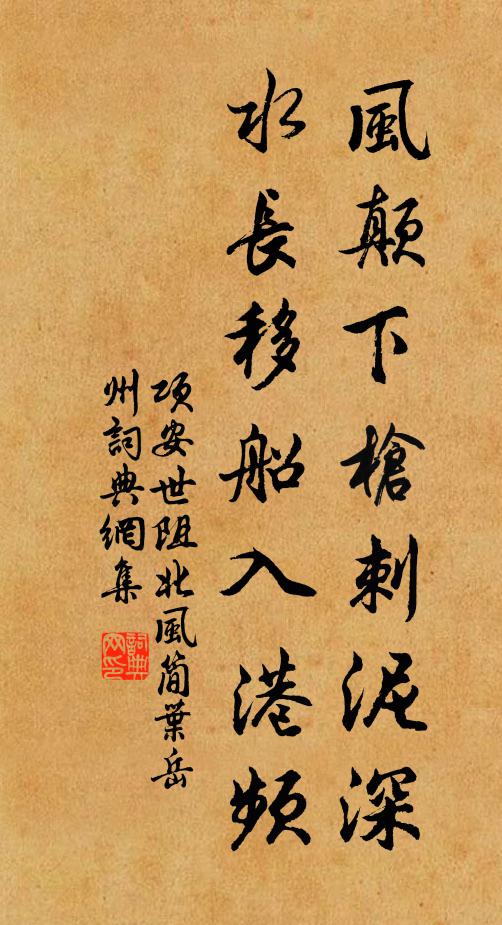 風顛下槍刺泥深
水長移船入港頻
项安世阻北風簡葉岳
州詞典網集
詞典
网印